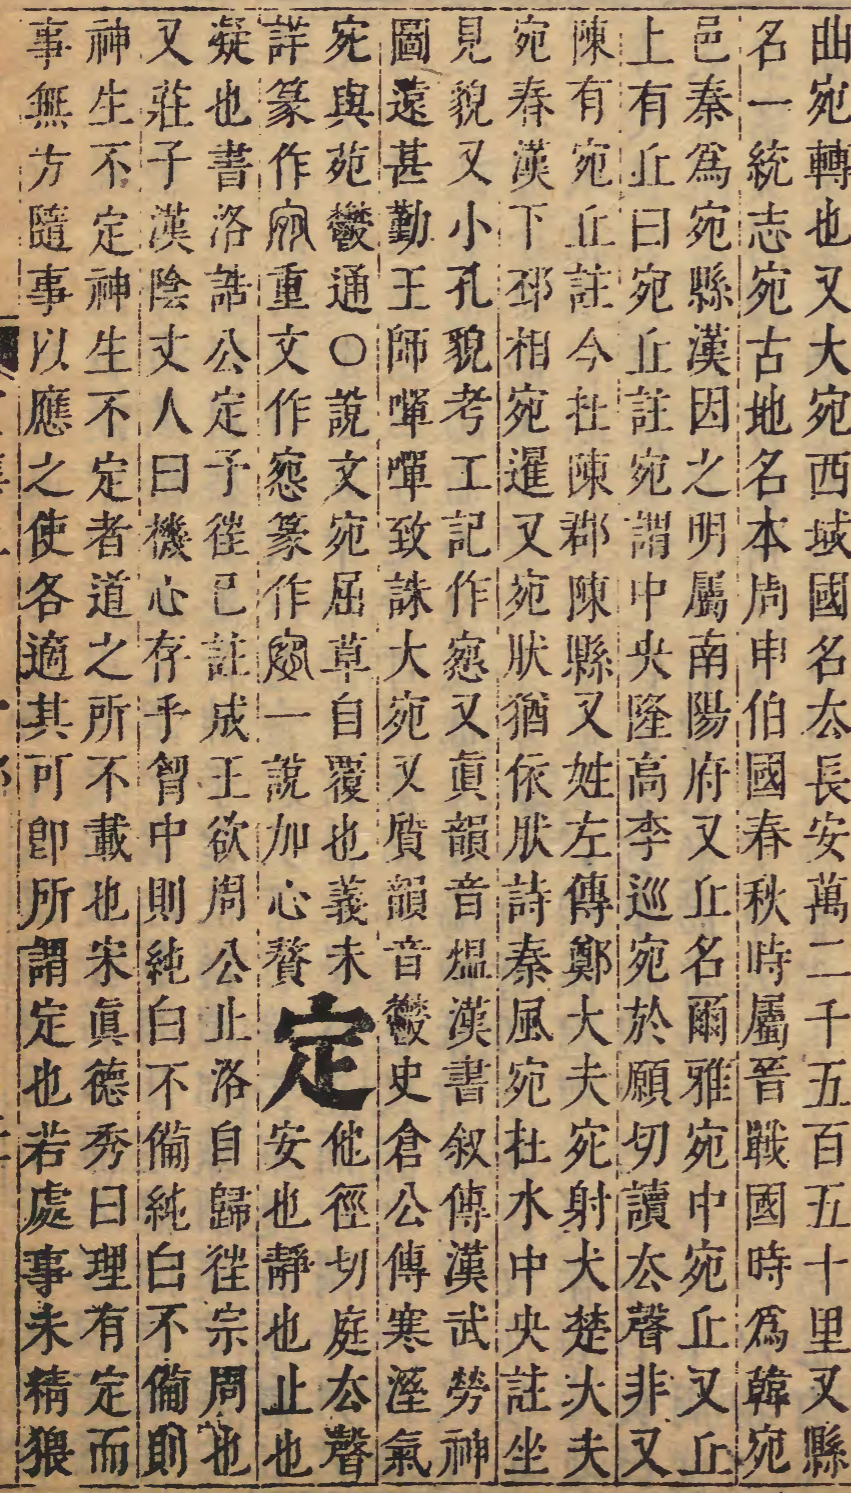 曲宛轉也又大宛西域國名厺長安萬二千五百五十里又縣
名一統志宛古地名本周申伯國春秋時屬晉戰國時爲韓宛
邑秦爲宛縣漢因之明屬南陽府又丘名爾雅宛中宛丘又丘
上有丘曰宛丘註宛謂中央隆高李巡宛於願切讀厺聲非又
陳有宛丘註今在陳郡陳縣又姓左傳鄭大夫宛射犬楚大夫
宛春漢下邳相宛暹又宛肰猶依肰詩秦風宛在水中央註坐
見貌又小孔貌考工記作惌又眞韻音熅漢書叙傳漢武勞神
圖遠甚勤王師嘽嘽致誅大宛又質韻音鬱史倉公傳寒溼氣
宛與苑鬱通○說文宛屈草自覆也義未
詳篆作宛重文作惌篆作惌一說加心贅
定
他徑切庭厺聲
安也靜也止也
凝也書洛誥公定予徃已註成王欲周公止洛自歸徃宗周也
又莊子漢陰丈人曰機心存乎胷中則純白不備純白不備則
神生不定神生不定者道之所不載也宋眞德秀曰理有定而
事無方隨事以應之使各適其可卽所謂定也若處事未精猥